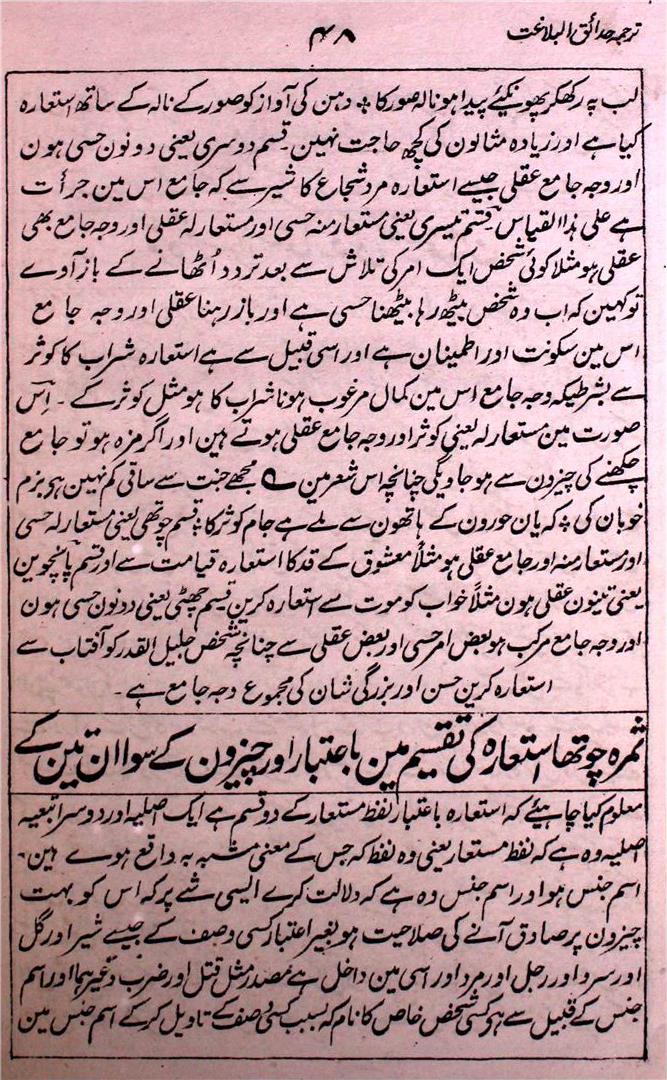 ترجمہ حدائق البلاغت
۴۸
لب پہ رکھکر پھونکیئے پیدا ہو نالہ صور کا ؞ دہن کی آواز کو صور کے نالہ کے ساتھ استعارہ
کیا ہے اور زیادہ مثالون کی کچھ حاجت نہین ۔ قسم دوسری یعنی دونون حسی ہون
اور وجہ جامع عقلی جیسے استعارہ مرد شجاع کا شیر سے کہ جامع اس مین جرأت
ہے علی ہذا القیاس ۔ قسم تیسری یعنی مستعار منہ حسی اور مستعار لہ عقلی اور وجہ جامع بھی
عقلی ہو مثلا کوئی شخص ایک امر کی تلاش سے بعد تردد اُٹھانے کے باز آوے
تو کہین کہ اب وہ شخص بیٹھ رہا بیٹھنا حسی ہے اور باز رہنا عقلی اور وجہ جامع
اس مین سکونت اور اطمینان ہے اور اسی قبیل سے ہے استعارہ شراب کا کوثر
سے بشرطیکہ وجہ جامع اس مین کمال مرغوب ہونا شراب کا ہو مثل کوثر کے ۔ اِس
صورت مین مستعار لہ یعنی کوثر اور وجہ جامع عقلی ہوتے ہین اور اگر مزہ ہو تو جامع
چکھنے کی چیزون سے ہو جاویگی چنانچہ اس شعر مین ؎ مجھے جنت سے ساقی کم نہین ہو بزم
خوبان کی ؞ کہ یان حورون کے ہاتھون سے ملے ہے جام کوثر کا ؞ قسم چوتھی یعنی مستعار لہ حسی
اور مستعار منہ اور جامع عقلی ہو مثلاً معشوق کے قد کا استعارہ قیامت سے اور قسم پانچوین
یعنی تینون عقلی ہون مثلاً خواب کو موت سے استعارہ کرین قسم چھٹی یعنی دونون حسی ہون
اور وجہ جامع مرکب ہو بعض امر حسی اور بعض عقلی سے چنانچہ شخص جلیل القدر کو آفتاب سے
استعارہ کرین حسن اور بزرگی شان کی مجموع وجہ جامع ہے ۔
ثمرہ چوتھا استعارہ کی تقسیم مین باعتبار اور چیزون کے سوا ان تین کے
معلوم کیا چاہیئے کہ استعارہ باعتبار لفظ مستعار کے دو قسم ہے ایک اصلیہ اور دوسرا تبعیہ
اصلیہ وہ ہے کہ لفظ مستعار یعنی وہ لفظ کہ جس کے معنی مشبہ بہ واقع ہوے ہین ۔
اسم جنس ہو اور اسم جنس وہ ہے کہ دلالت کرے ایسی شے پر کہ اس کو بہت
چیزون پر صادق آنے کی صلاحیت ہو بغیر اعتبار کسی وصف کے جیسے شیر اور گل
اور سرد اور رجل اور مرد اور اسی مین داخل ہے مصدر مثل قتل اور ضرب وغیرہما اور اسم
جنس کے قبیل سے ہو کسی شخص خاص کا نام کہ بسبب کسی وصف کے تاویل کر کے اسم جنس مین